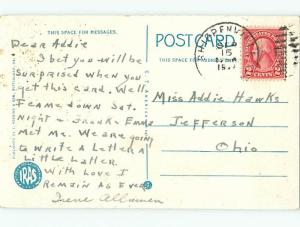 THIS SPACE FOR WRITING
Dear Addie
I bet you will be
surprised when you
get this card. Well
I came down Sat.
Night - Frank Emma
Met Me. We are going
to write a Letter a
Little Latter.
With Love I
Remain As Ever
Irene
POST CARD
Miss Addie Hawks
Jefferson
Ohio
SEP
15
CENTS